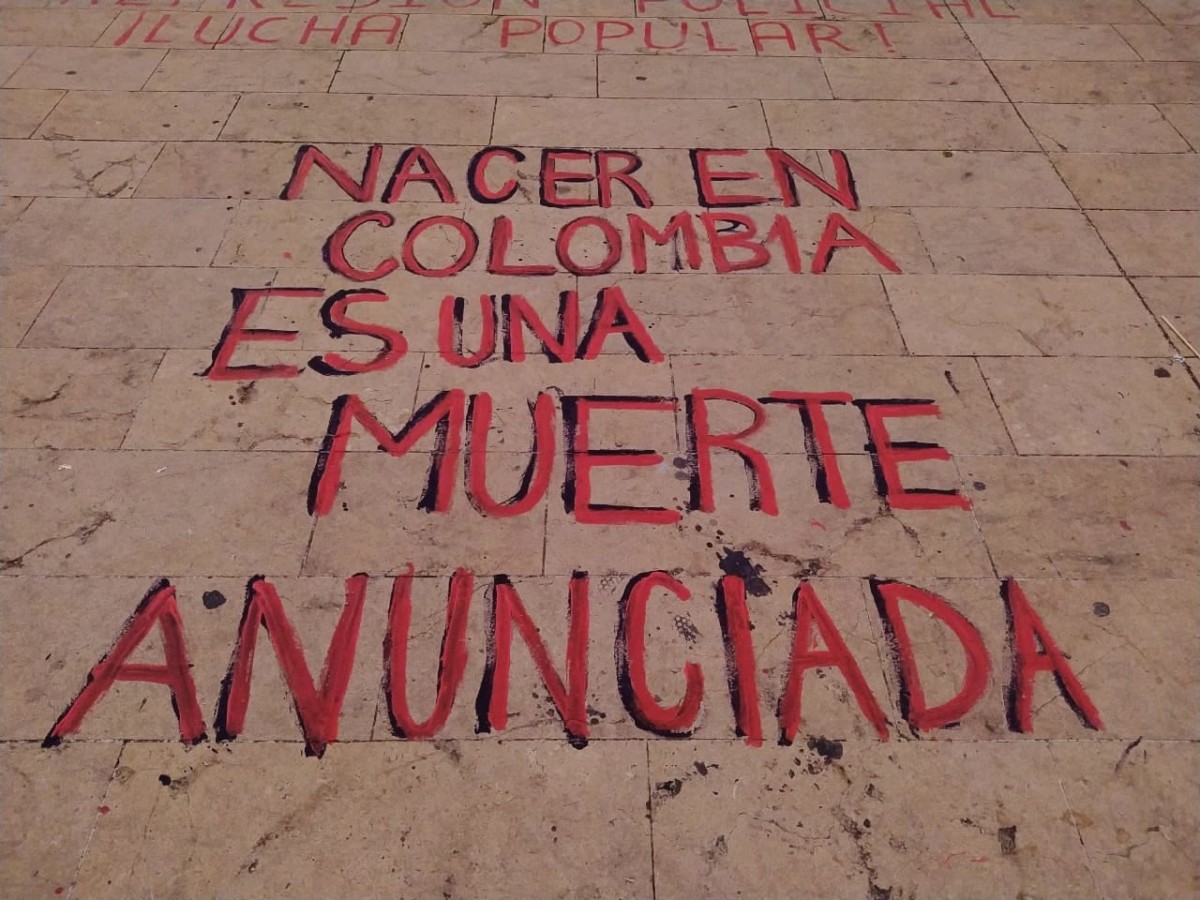 REPRESIÓN POLICIAL
¡LUCHA POPULAR!
NACER EN
COLOMBIA
ES UNA
MUERTE
ANUNCIADA